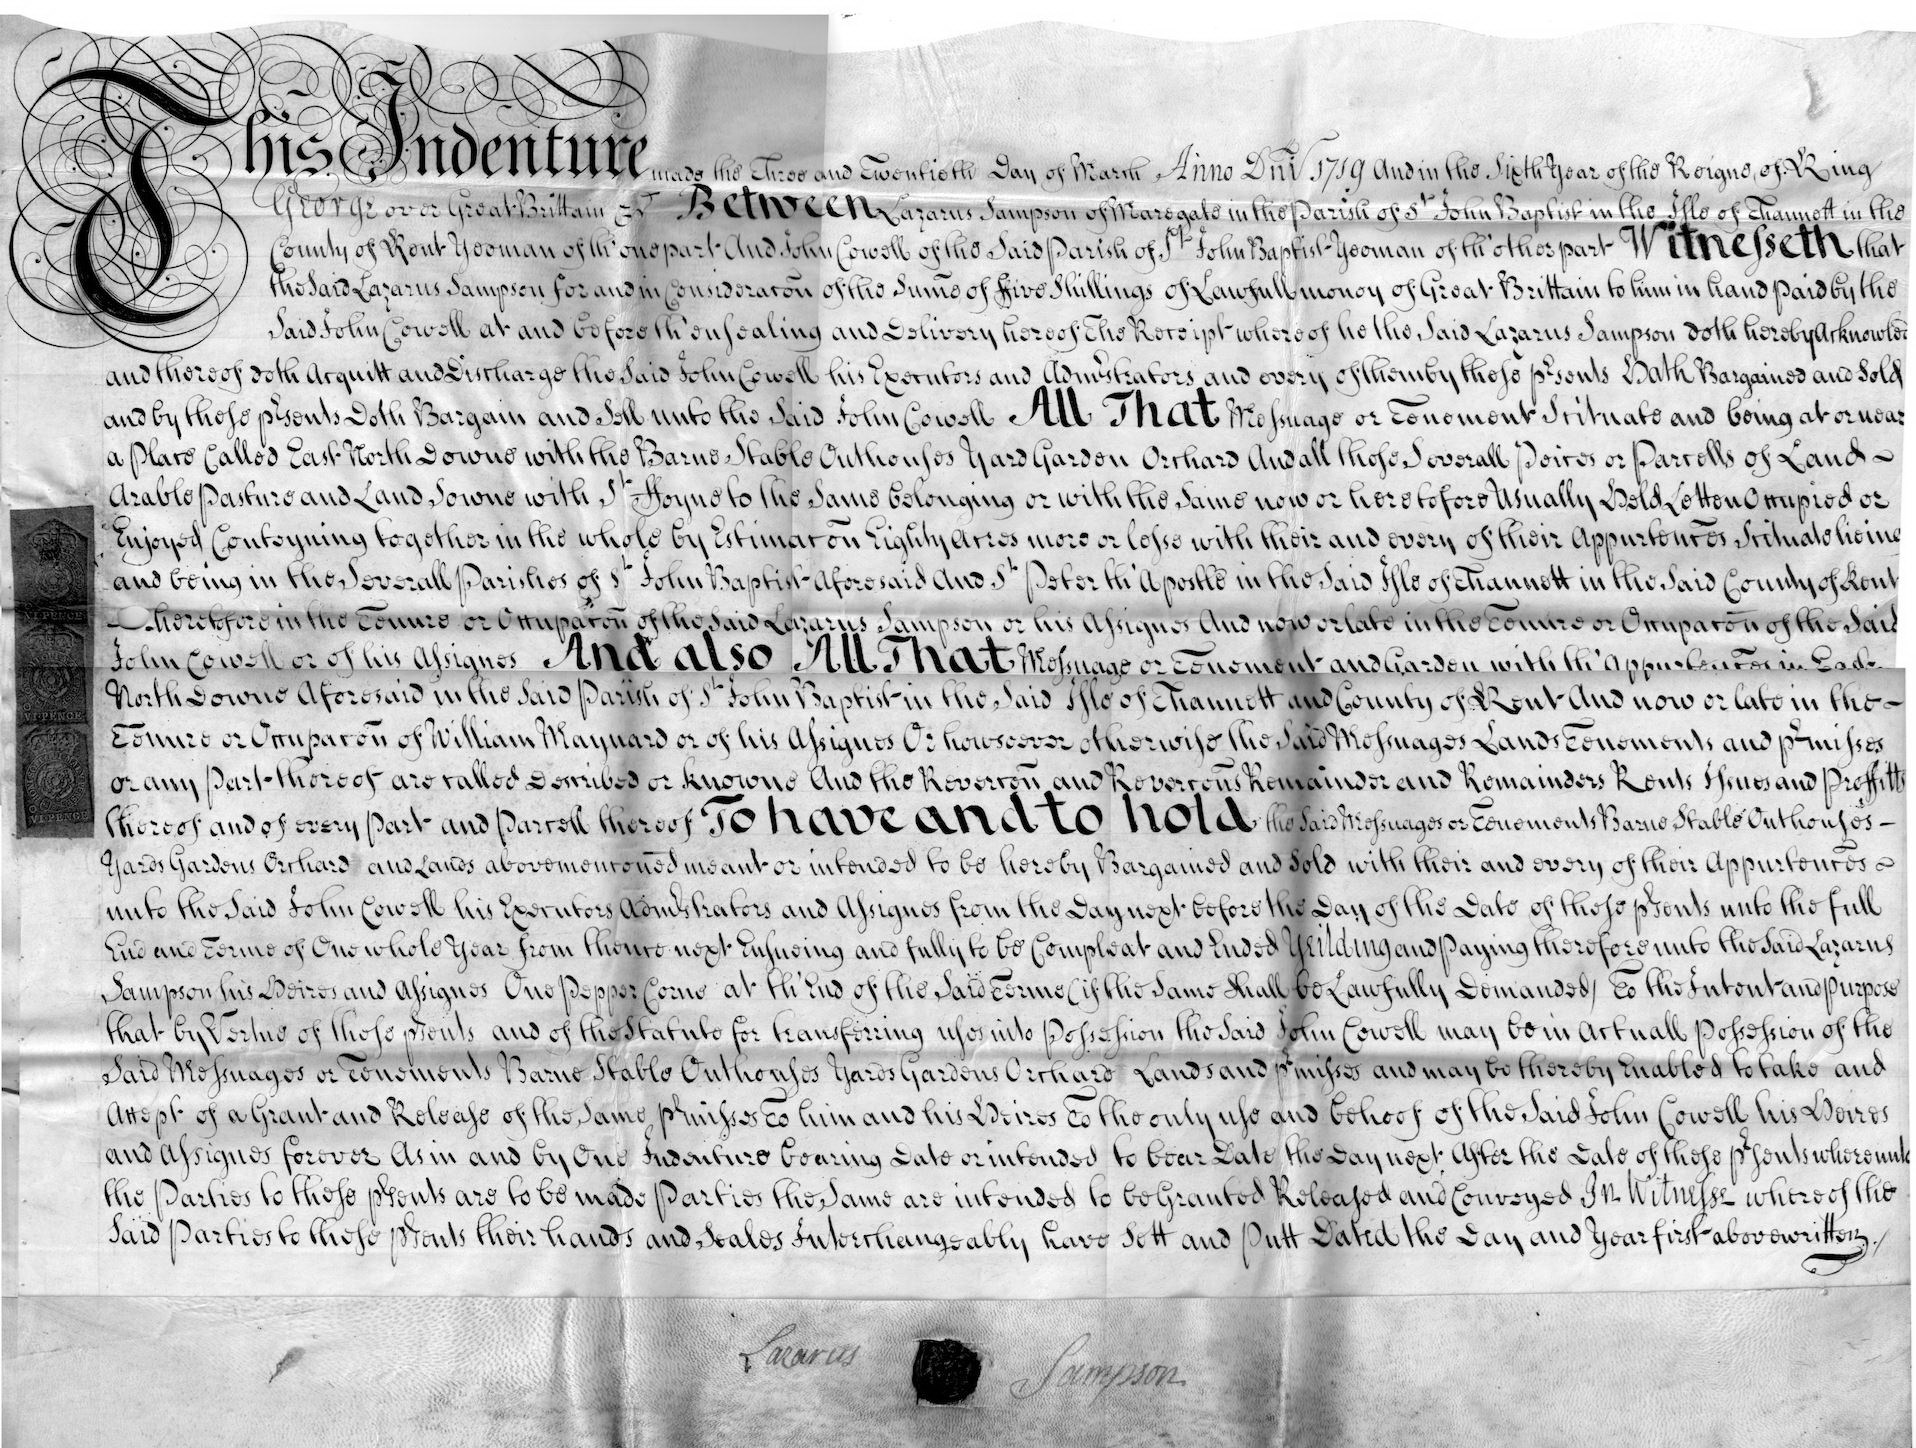 This Indenture made the Three and Twentieth Day of March Anno Dni 1719 And in the Sixth Year of the Reigne of King
George over Great Brittain &c Between Lazarus Sampson of Maregate in the Parish of St John Baptist in the Isle of Thannett in the
County of Kent Yeoman of th'one part And John Cowell of the Said Parish of St John Baptist Yeoman of th'other part Witnesseth that
the Said Lazarus Sampson for and in Consideracon of the Sume of ffive Shillings of Lawfull money of Great Brittain to him in hand paid by the
Said John Cowell at and before th'ensealing and Delivery hereof The Receipt whereof he the Said Lazarus Sampson doth hereby Acknowled
and thereof doth Acquitt and Discharge the Said John Cowell his Executors and Adminstrators and every of them by these prsents Hath Bargained and Sold
and by these prsents Doth Bargain and Sell unto the Said John Cowell All That Messuage or Tenement Scituate and being at or near
a Place Called East North Downe with the Barne Stable Outhouses Yard Garden Orchard And all those Severall Peices or Parcells of Land
Arable Pasture and Land Sowne with St ffoyne to the Same belonging or with the Same now or heretofore Usually Held Letten Occupied or
Enjoyed Conteyning together in the whole by Estimacon Eighty Acres more or lesse with their and every of their Appurtences Scituate lieing
and being in the Severall Parishes of St John Baptist Aforesaid And St Peter th'Apostle in the Said Isle of Thannett in the Said County of Kent
heretofore in the Tenure or Occupacon of the Said Lazarus Sampson or his Assignes And now or late in the Tenure or Occupacon of the Said
John Cowell or of his Assignes And also All That Messuage or Tenement and Garden with th'Appurtences in East
North Downe Aforesaid in the Said Parish of St John Baptist in the Said Isle of Thannett and County of Kent And now or late in the
Tenure or Occupacon of William Maynard or of his Assignes Or howsoever otherwise the Said Messuages Lands Tenements and prmisses
or any Part thereof are called Described or knowne And the Revercon and Revercons Remainder and Remainders Rents Issues and Proffitts
thereof and of every Part and Parcell thereof To have and to hold the Said Messuages or Tenements Barne Stable Outhouses
Yards Gardens Orchard and Lands abovemenconed meant or intended to be hereby Bargained and Sold with their and every of their Appurtences
unto the Said John Cowell his Executors Adminstrators and Assignes from the Day next before the Day of the Date of these prsents unto the full
End and Terme of One whole Year from thence next Ensueing and fully to be Compleat and Ended Yeilding and Paying therefore unto the Said Lazarus
Sampson his Heires and Assignes One Pepper Corne at th'End of the Said Terme (if the Same Shall be Lawfully Demanded) To the Intent and Purpose
that by Vertue of these prsents and of the Statute for transferring uses into Possession the Said John Cowell may be in Actuall Possession of the
Said Messuages or Tenements Barne Stable Outhouses Yards Gardens Orchard Lands and prmisses and may be thereby Enabled to take and
Accept of a Grant and Release of the Same prmisses To him and his Heires To the only use and behoof of the Said John Cowell his Heires
and Assignes forever As in and by One Indenture bearing Date or intended to bear Date the Day next After the Date of these prsents whereunto
the Parties to these prsents are to be made Parties the Same are intended to be Granted Released and Conveyed In Witnesse whereof the
Said Parties to these prsents their hands and Seales Interchangeably have Sett and Putt Dated the Day and Year first abovewritten
VI PENCE
VI PENCE
VI PENCE
Lazarus Sampson